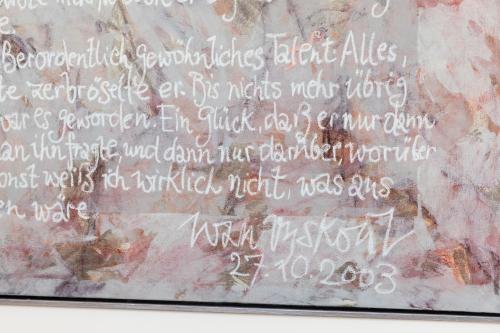 ßerordentlich gewöhnliches Talent Alles,
te zerbröselte er. Bis nichts mehr übrig
war es geworden. Ein Glück, daß er nur dann
an ihn fragte und dann nur darüber, worüber
onst weiß ich wirklich nicht, was aus
en wäre
27.10.2003